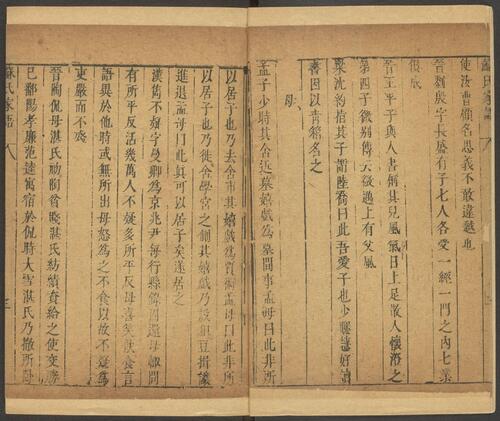 使汝曹顧名思義不敢違越也
晉劉殷字長盛有子七人各受一經一門之內七業
俱成
晉王平子與人書稱其兒風氣日上足散人懷澄之
第四子微別傳云微邁上有父風
梁沈約指其子謂陸喬曰此吾愛子也少聰慧好讀
書因以青箱名之
母
孟子少時其舍近墓嬉戲為墓間事孟母曰此非所
以居子也乃去舍市其嬉戲為賈衒孟母曰此非所
以居子也乃徙舍學宮之側其嬉戲乃設俎豆揖讓
進退孟母曰此真可以居子矣遂居之
漢雋不疑字曼卿為京兆尹每行縣錄囚還母輒問
有所平反活幾人不疑多所平反母喜笑飲食言
語異於他時或無所出母怒為之不食以故不疑為
吏嚴而不殘
晉陶侃母湛氏初陶貧賤湛氏紡績資給之使交勝
已鄱陽孝廉范逵寓宿於侃時大雪湛氏乃撤所
蘇氏家語 八 三